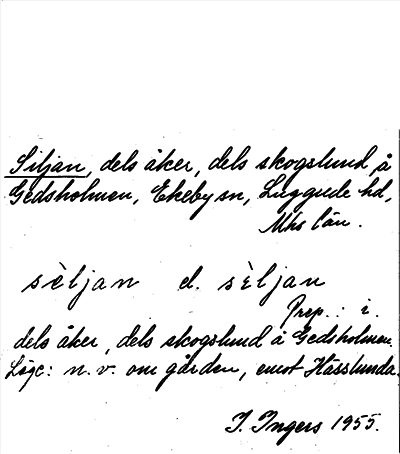 Siljan, dels åker, dels skogslund å
Gedsholmen, Ekeby sn, Luggude hd,
Mhs län.
sèljan el. sèljan
Prep.: i.
dels åker, dels skogslund å Gedsholmen.
Läge: n.v. om gården, emot Hässlunda.
I. Ingers 1955.